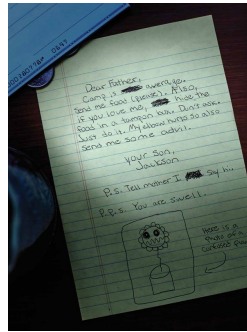 Dear Father,
Camp is average.
Send me food (please). Also,
if you love me, hide the
food in a tampon box. Don't ask.
Just do it. My elbow hurts so also
send me some advil.
your son,
Jackson
P.S. Tell mother I say hi.
P.P.S. You are swell.
Here is a
photo of a
confused